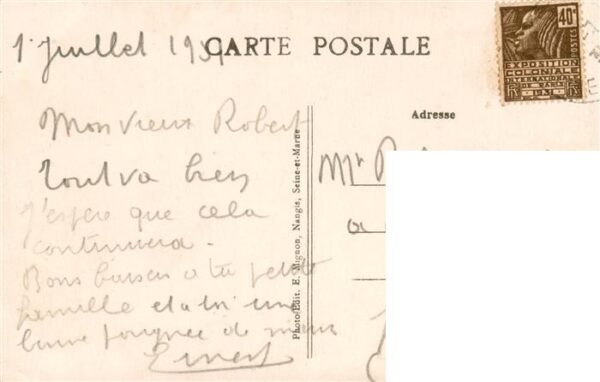 1 Juillet 193
CARTE POSTALE
40c
POSTES
EXPOSITION
COLONIALE
INTERNATIONALE
DE PARIS
Adresse
Mon vieux Robert
Tout va bien
J'espère que cela
continuera -
Bons baisers a ta petite
famille et a toi une
bonne poignée de main
Ernest
Photo-Edit. E. Mignon, Nangis, Seine-et-Marne
Mr
a